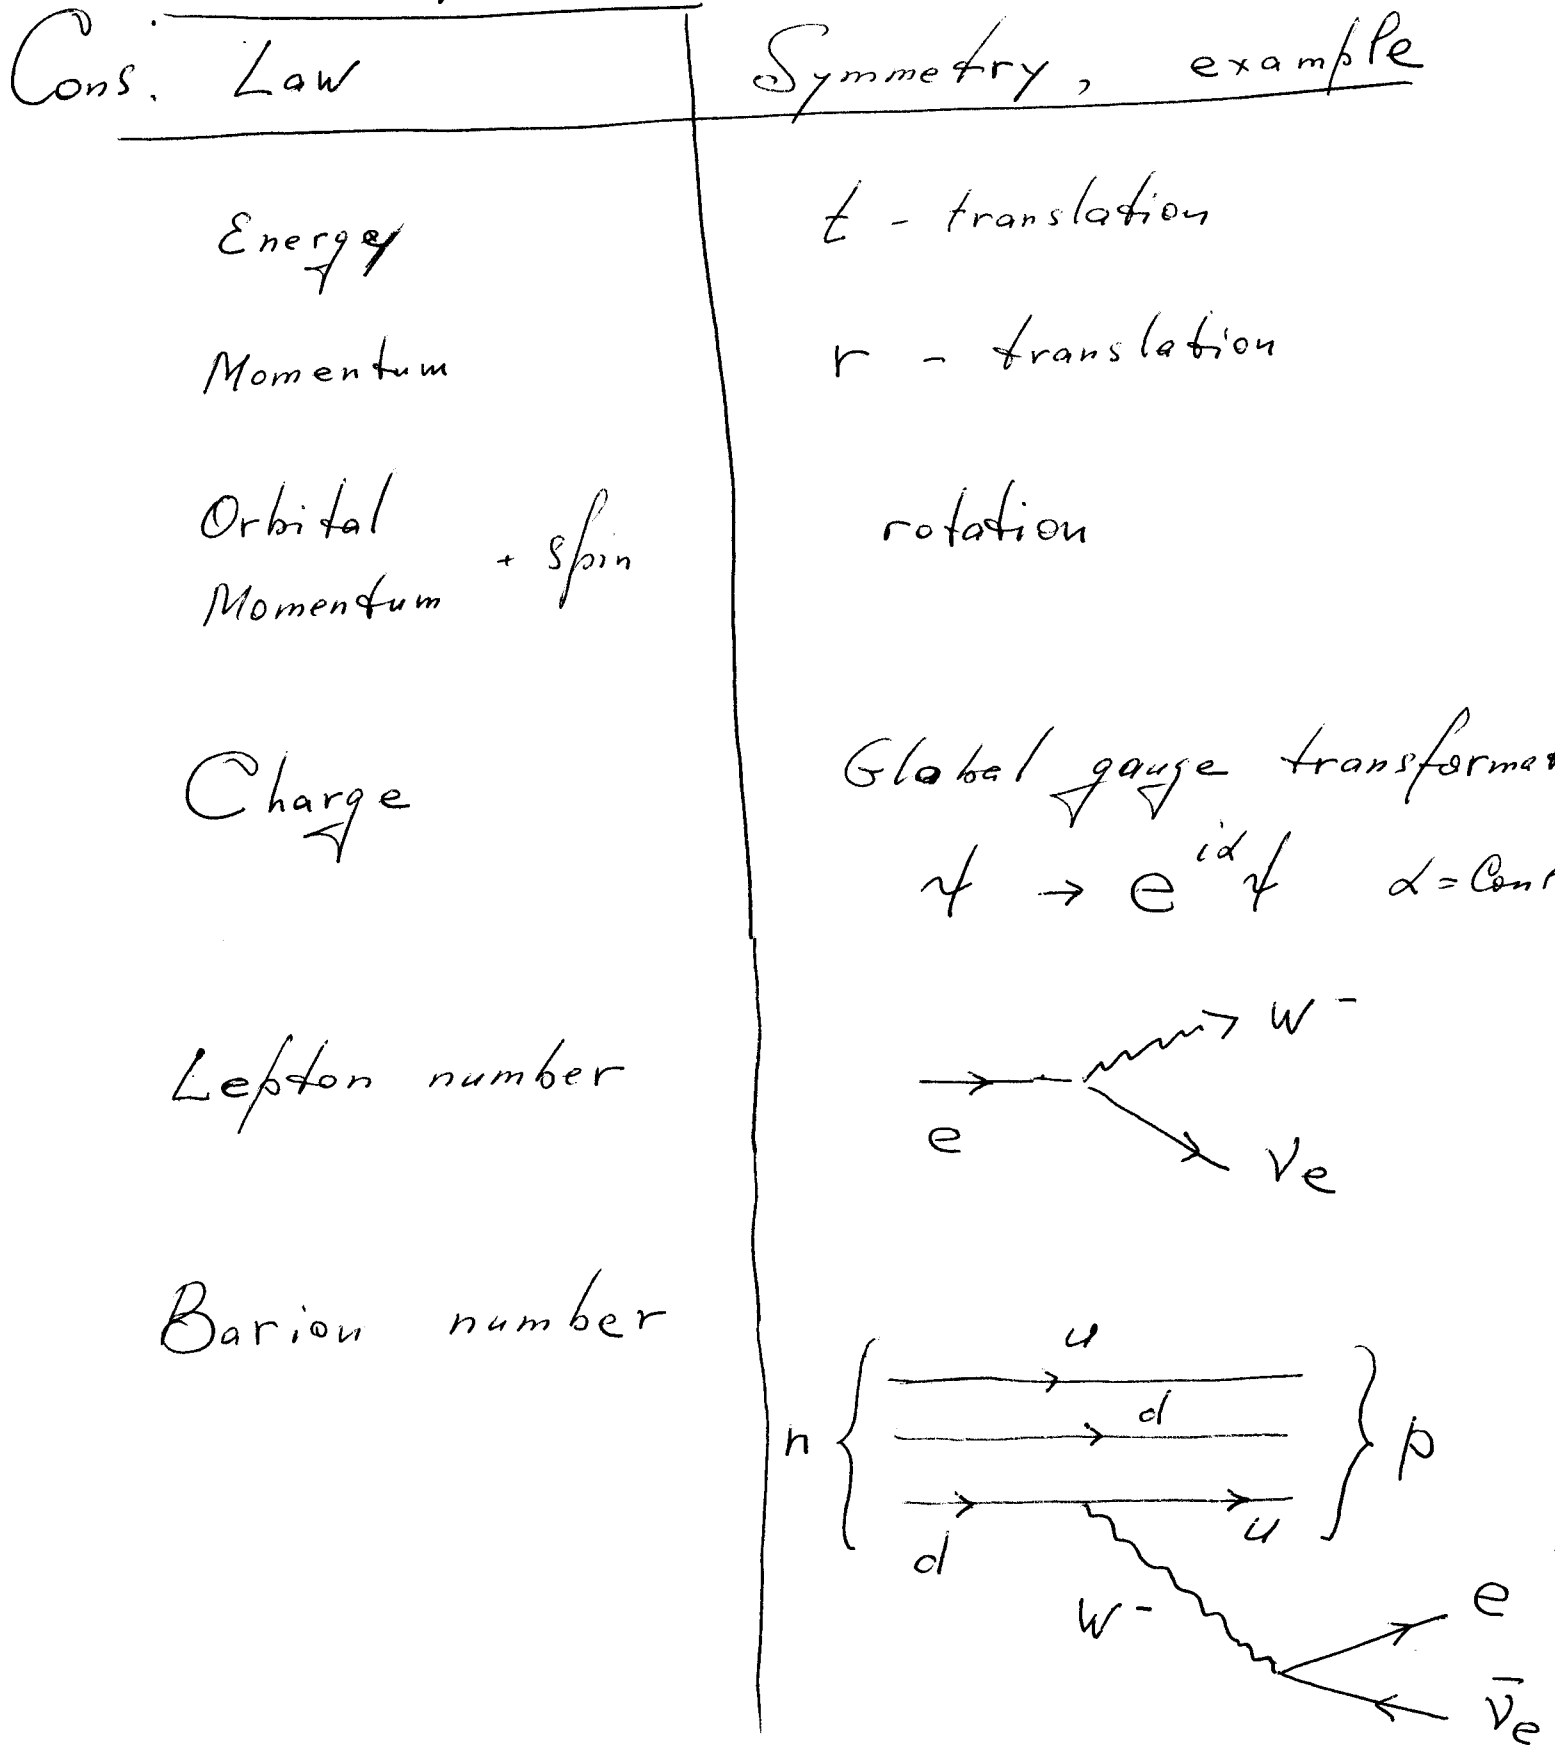 Cons. Law Symmetry, example
Energy t - translation
Momentum r - translation
Orbital
Momentum + spin rotation
Charge Global gauge
ψ → e^{iα} ψ α =
Lepton number
W⁻
e
νe
Barion number
u
d
n { } p
d u
W⁻
e
ν̄e